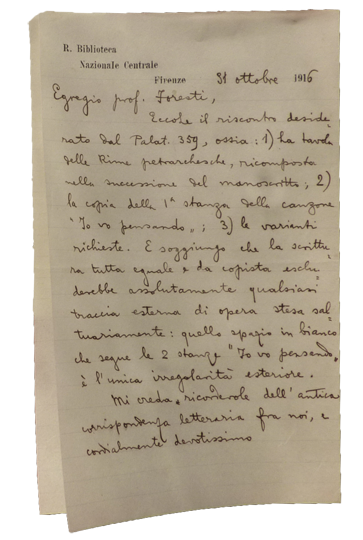 R. Biblioteca
Nazionale Centrale
Firenze 31 ottobre 1916
Egregio prof. Foresti,
Eccole il riscontro deside-
rato dal Palat. 359, ossia: 1) la tavola
delle Rime petrarchesche, ricomposta
nella successione del manoscritto; 2)
la copia della 1ª stanza della canzone
"Io vo pensando"; 3) le varianti
richieste. E soggiungo che la scrittu-
ra tutta eguale e da copista esclu-
derebbe assolutamente qualsiasi
traccia esterna di opera stesa sal-
tuariamente: quello spazio in bianco
che segue le 2 stanze "Io vo pensando"
è l'unica irregolarità esteriore.
Mi creda, ricordevole dell'antica
corrispondenza letteraria fra noi, e
cordialmente devotissimo